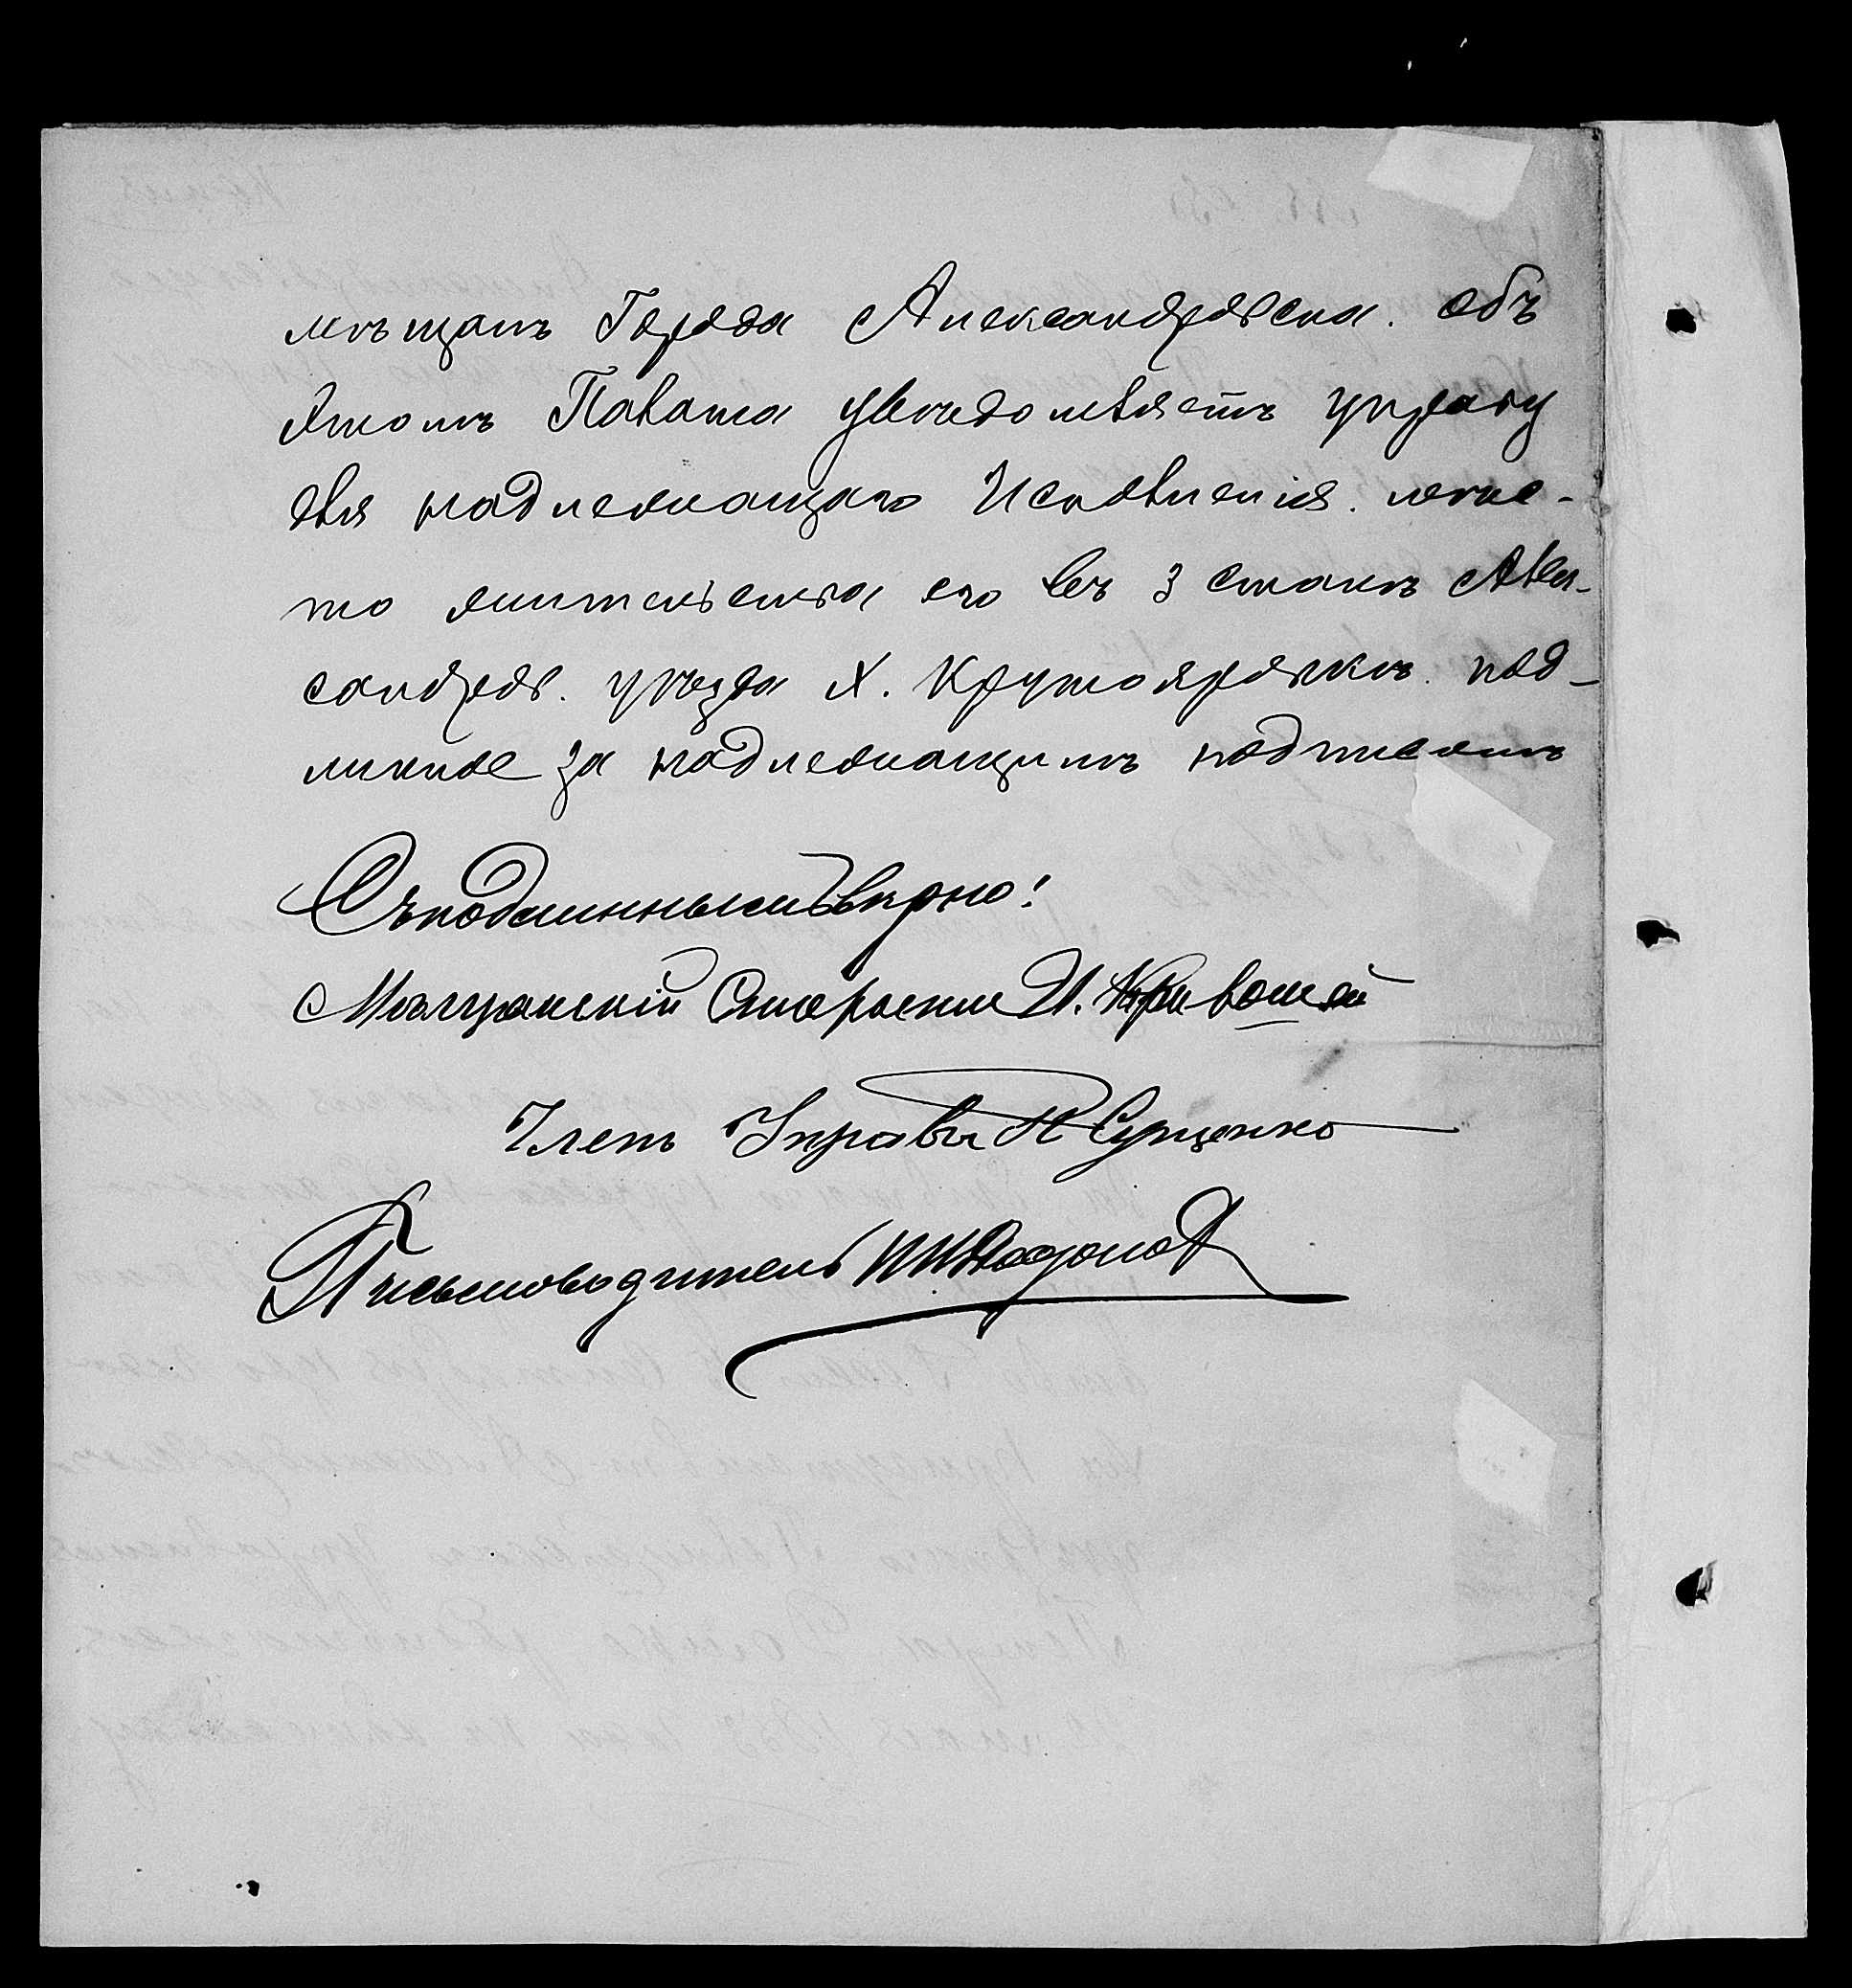 мѣщанъ Города Александровска. объ
этомъ Палата увѣдомляетъ управу
для надлежащаго Исполненія. мѣс-
то жительства его въ 3 станѣ Алек-
сандров. уѣзда Х. Крутояровкѣ. под-
линное за надлежащимъ подписомъ
Съ подлиннымъ вѣрно!
Мѣщанскій Староста И. Кривошей
Членъ Управы Н Сущенко
Письмоводитель